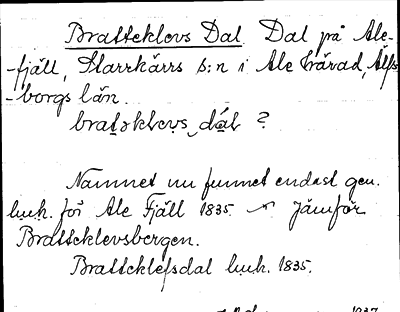 Bratteklevs Dal. Dal på Ale-
-fjäll, Starrkärrs s:n i Ale härad, Älfs
-borgs län.
bratəklevs dál ?
Namnet nu funnet endast gen.
luuk. för Ale Fjäll 1835. Jämför
Bratteklevsbergen.
Bratteklefsdal luuk. 1835.
1937